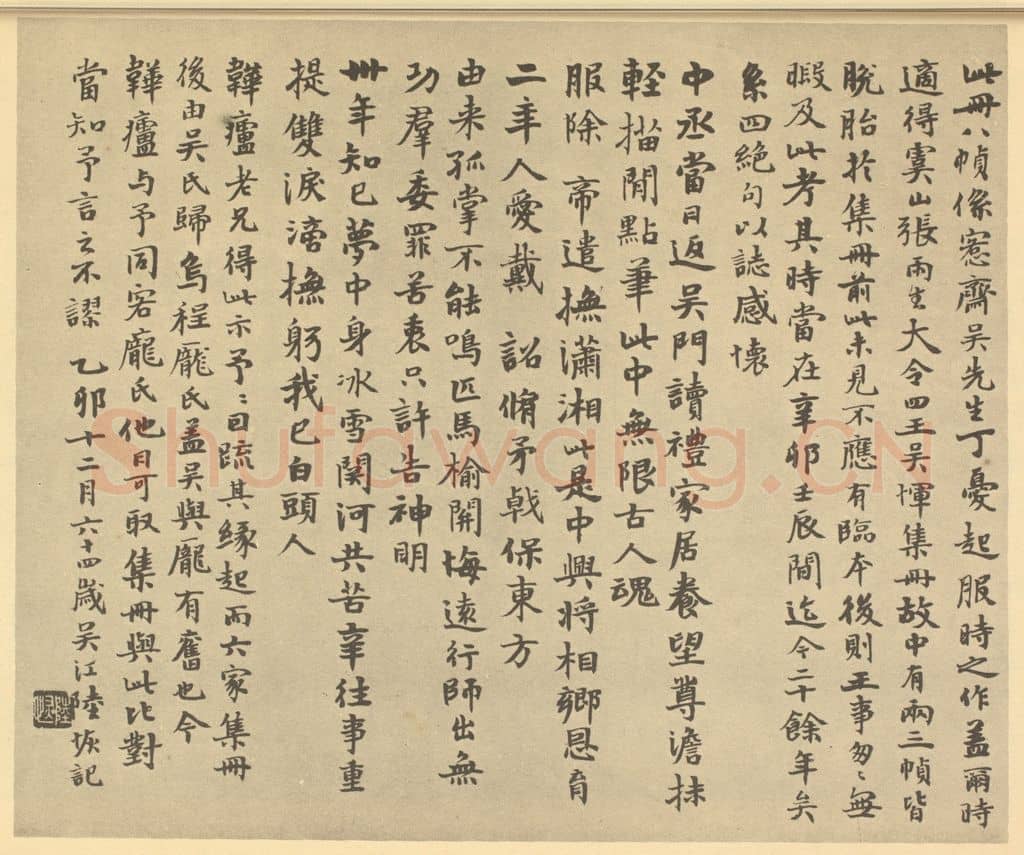 此冊八幀係愙齋吳先生丁憂起服時之作蓋爾時
適得虞山張雨生大令四王吳惲集冊故中有兩三幀皆
脫胎於集冊前此未見不應有臨本後則王事匆〻無
暇及此考其時當在辛卯壬辰間迄今二十餘年矣
系四絕句以誌感懷
中丞當日返吳門讀禮家居養望尊澹抹
輕描閒點筆此中無限古人魂
服除 帝遣撫瀟湘此是中興將相鄉恩育
二年人愛戴 詔脩矛戟保東方
由来孤掌不能鳴匹馬榆關悔遠行師出無
功羣委罪苦衷只許告神明
卅年知己夢中身冰雪関河共苦辛往事重
提雙淚滂撫躬我已白頭人
韡廬老兄得此示予〻曰疏其緣起而六家集冊
後由吳氏歸烏程龐氏蓋吳與龐有舊也今
韡廬与予同客龐氏他日可取集冊與此比對
當知予言之不謬 乙卯十二月六十四歲吳江陸恢記
陸恢
Shufawang.CN